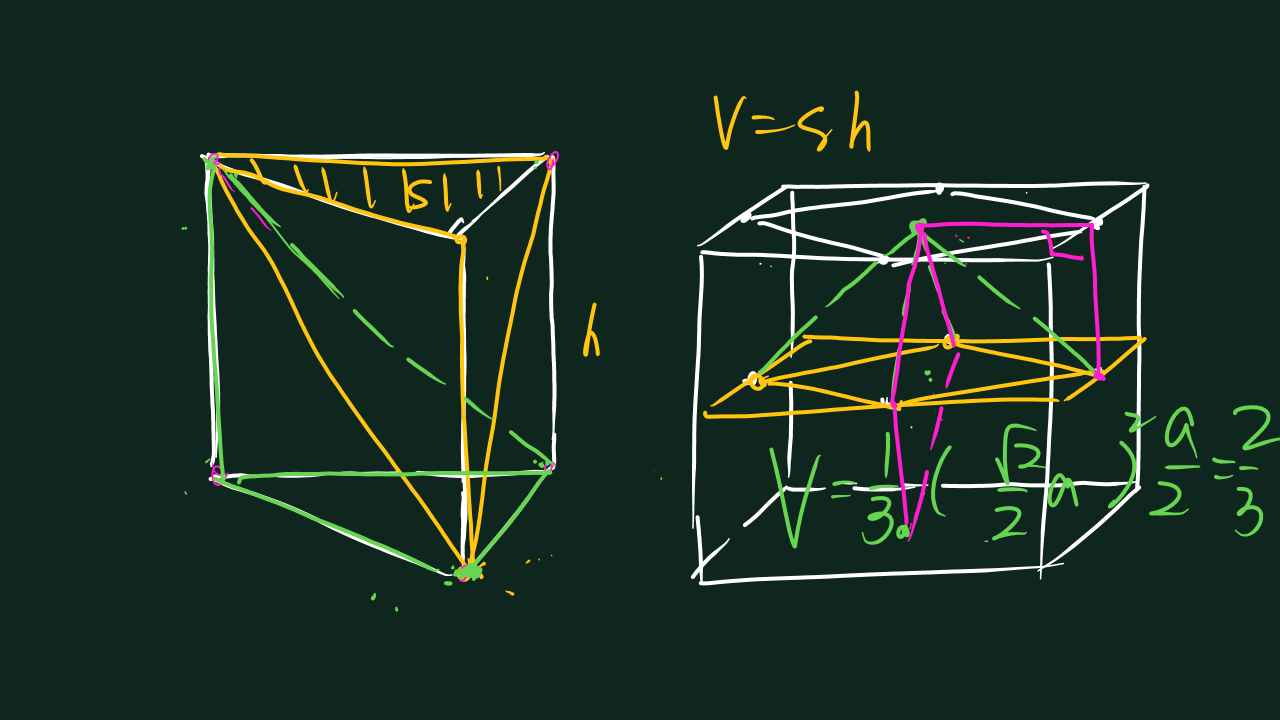 V=sh
S
h
V=1/3a(√2/2 a)² a/2=2/3